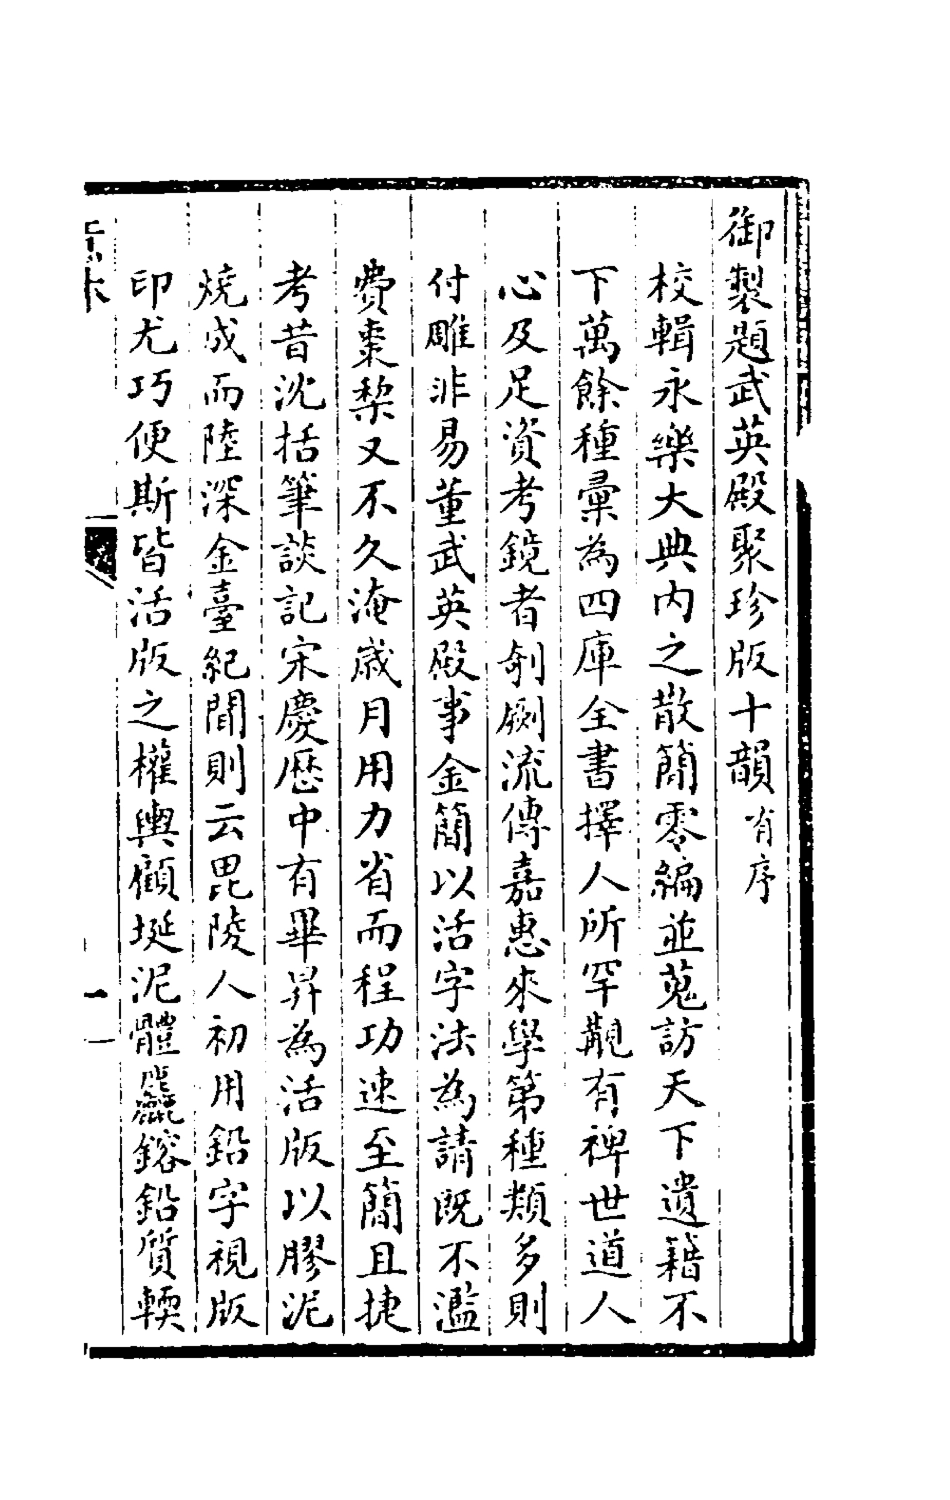 御製題武英殿聚珍版十韻有序
校輯永樂大典內之散簡零編並蒐訪天下遺籍不
下萬餘種彙為四庫全書擇人所罕覯有裨世道人
心及足資考鏡者剞劂流傳嘉惠來學第種類多則
付雕非易董武英殿事金簡以活字法為請既不濫
費棗棃又不久淹歲月用力省而程功速至簡且捷
考昔沈括筆談記宋慶歷中有畢昇為活版以膠泥
燒成而陸深金臺紀聞則云毘陵人初用鉛字視版
印尤巧便斯皆活版之權輿顧埏泥體麤鎔鉛質輭
一